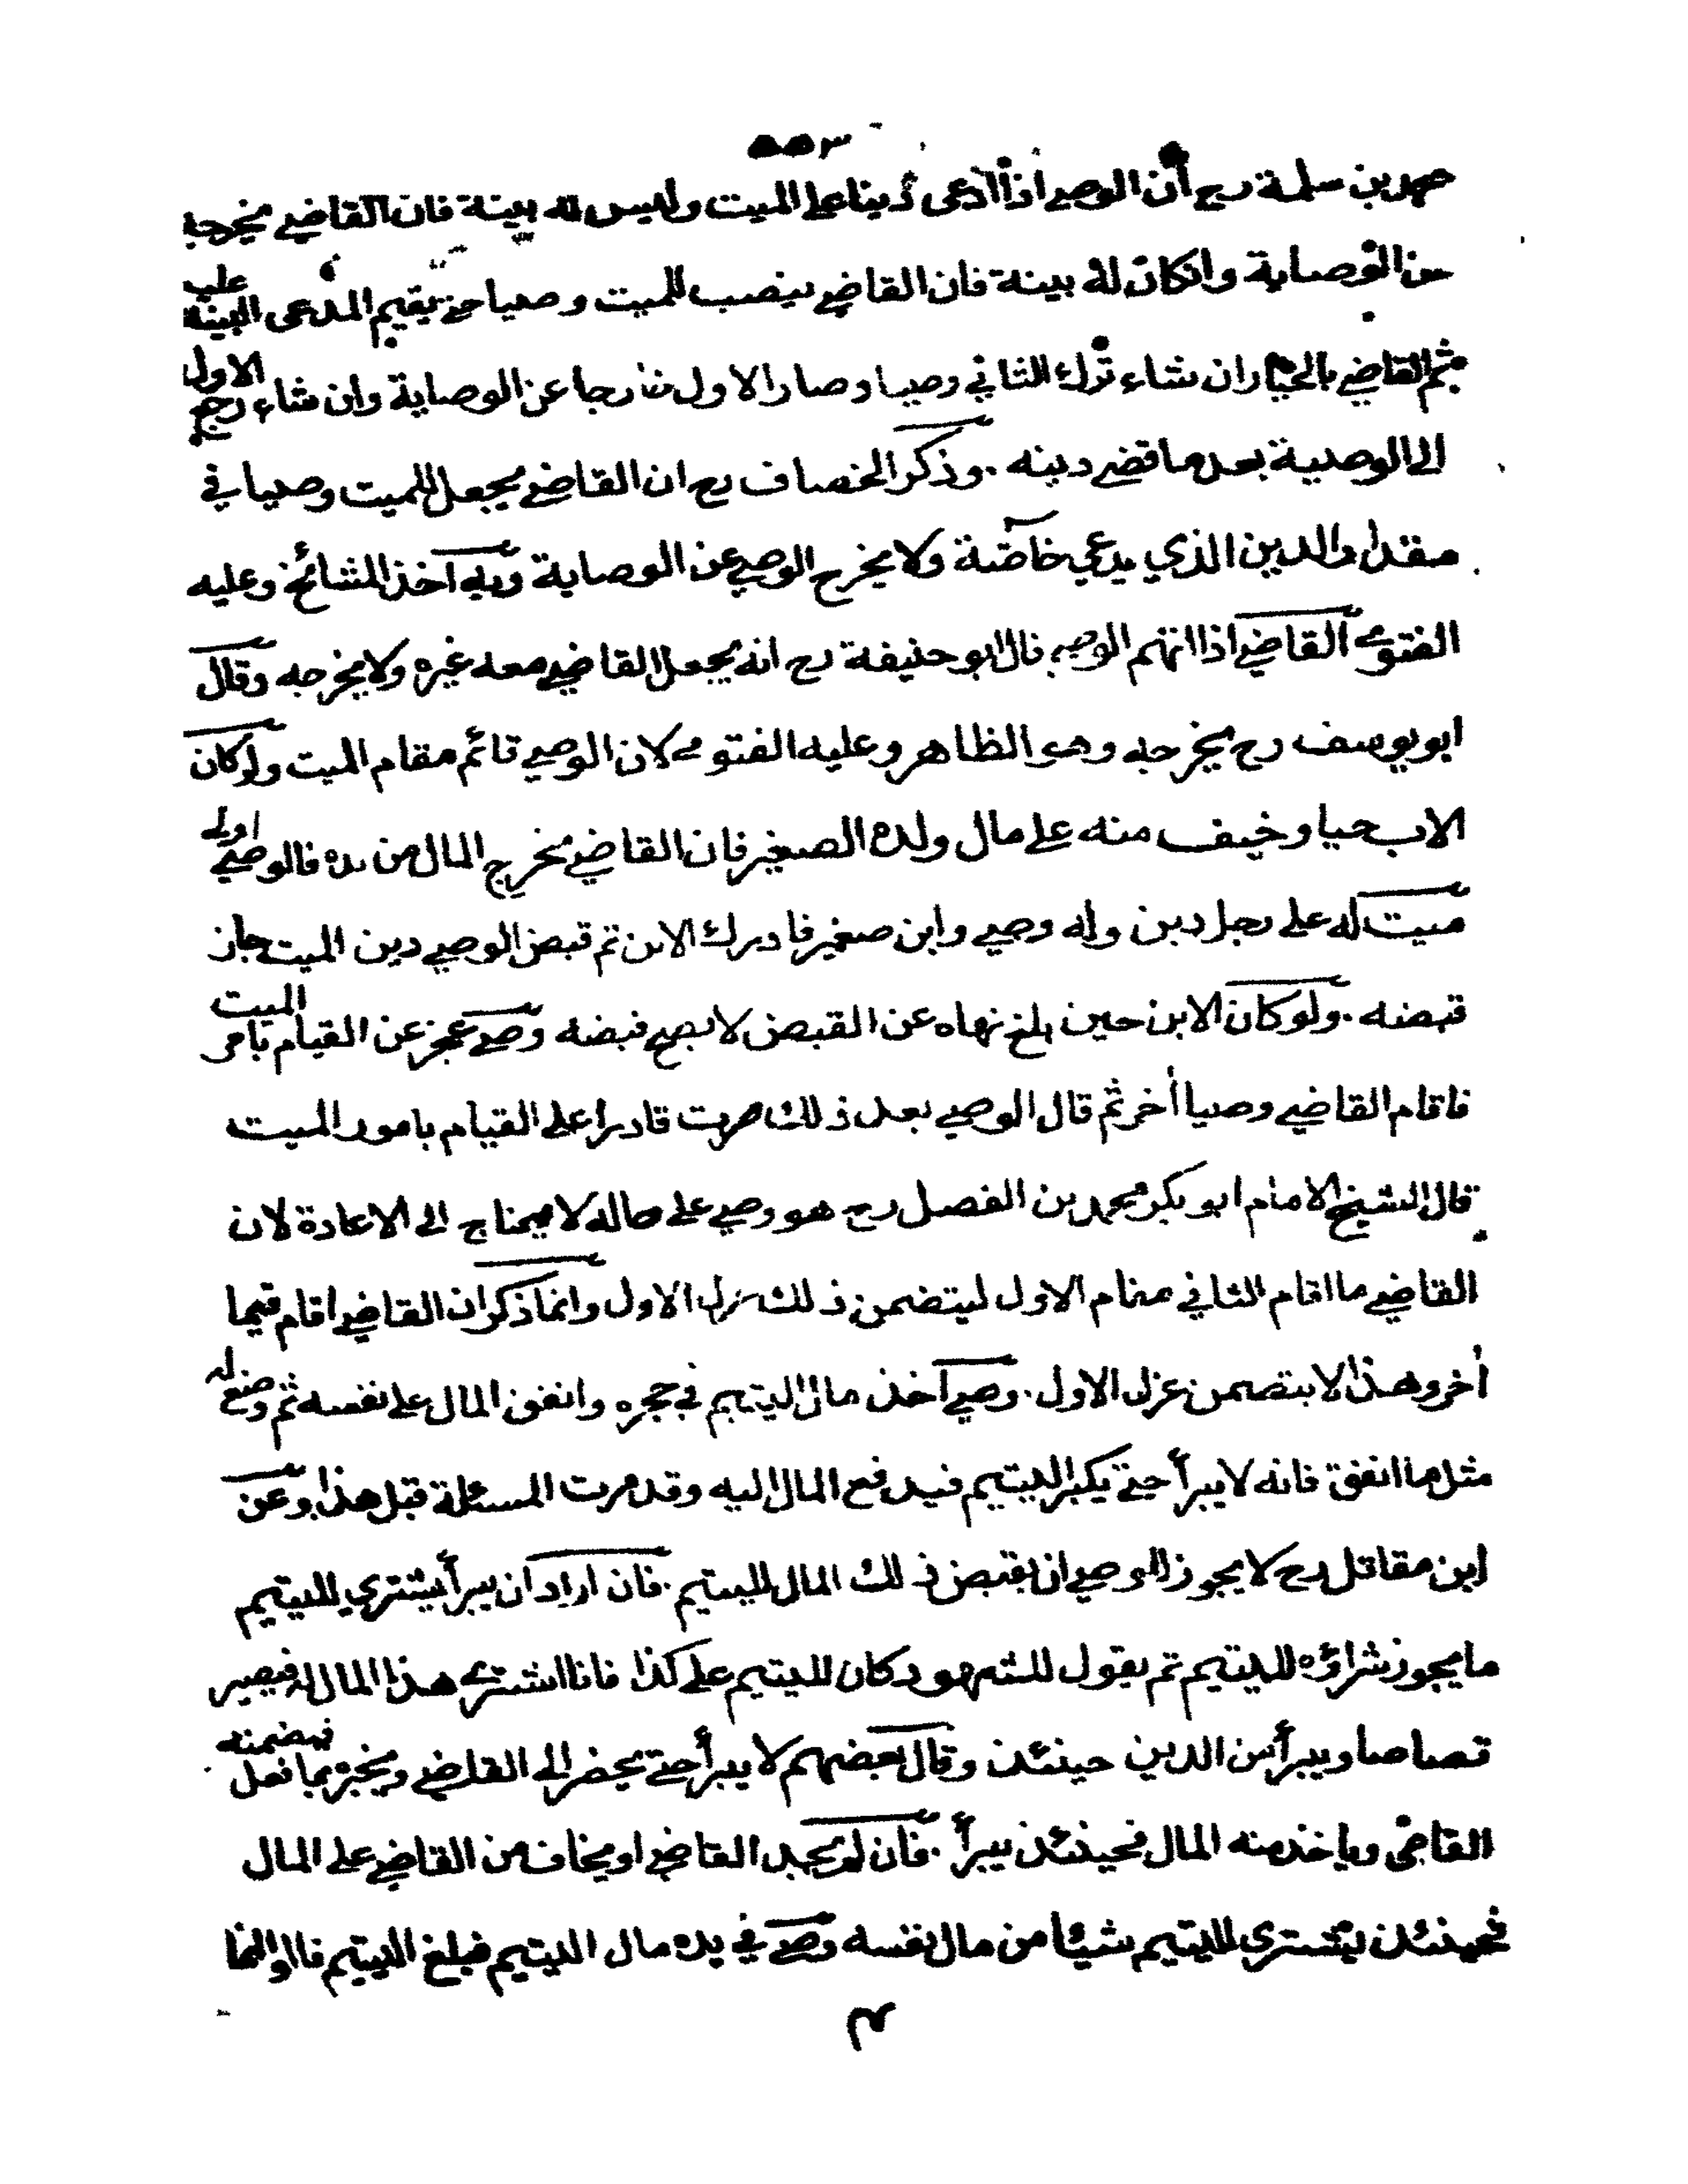 محمد بن سلمة رح أن الوصي اذا ادعى دينا على الميت وليس له بينة فان القاضي يخرجه
من الوصاية وانكان له بينة فان القاضي ينصب للميت وصيا حتى يقيم المدعى البينة عليه
ثم القاضي بالخيار ان شاء ترك الثاني وصيا وصار الاول خارجا عن الوصاية وان شاء رجع الاول
الى الوصية بعد ما قضى دينه . وذكر الخصاف رح ان القاضي يجعل للميت وصيا في
مقدار الدين الذي يدعي خاصة ولا يخرج الوصي عن الوصاية وبه اخذ المشائخ وعليه
الفتوى القاضي اذا اتهم الوصي قال ابو حنيفة رح انه يجعل القاضي معه غيره ولا يخرجه وقال
ابو يوسف رح يخرجه وهو الظاهر وعليه الفتوى لان الوصي قائم مقام الميت ولو كان
الاب حيا وخيف منه على مال ولده الصغير فان القاضي يخرج المال من يده فالوصي اولى
ميت له على رجل دين وله وصي وابن صغير فادرك الابن ثم قبض الوصي دين الميت جاز
قبضه . ولو كان الابن حين بلغ نهاه عن القبض لا يصح قبضه وصي عجز عن القيام بامر الميت
فاقام القاضي وصيا أخر ثم قال الوصي بعد ذلك صرت قادرا على القيام بامور الميت
قال الشيخ الامام ابو بكر محمد بن الفضل رح هو وصي على حاله لا يحتاج الى الاعادة لان
القاضي ما اقام الثاني مقام الاول ليتضمن ذلك عزل الاول وانما ذكر ان القاضي اقام قيما
أخر وهذا لا يتضمن عزل الاول . وصي اخذ مال اليتيم في حجره وانفق المال على نفسه ثم وضع له
مثل ما انفق فانه لا يبرأ حتى يكبر اليتيم فيدفع المال اليه وقد مرت المسئلة قبل هذا وعن
ابن مقاتل رح لا يجوز للوصي ان يقبض ذلك المال لليتيم . فان اراد ان يبرأ يشتري لليتيم
ما يجوز شراؤه لليتيم ثم يقول للشهود كان لليتيم على كذا فانا اشتري هذا المال له فيصير
قصاصا ويبرأ من الدين حينئذ وقال بعضهم لا يبرأ حتى يحضر الى القاضي ويخبره بما فعل فيضمنه
القاضى وياخذ منه المال فحينئذ يبرأ . فان لم يجد القاضي او يخاف من القاضي على المال
فحينئذ يشترى لليتيم شيئا من مال نفسه وصي في يده مال اليتيم فبلغ اليتيم قالوا انما